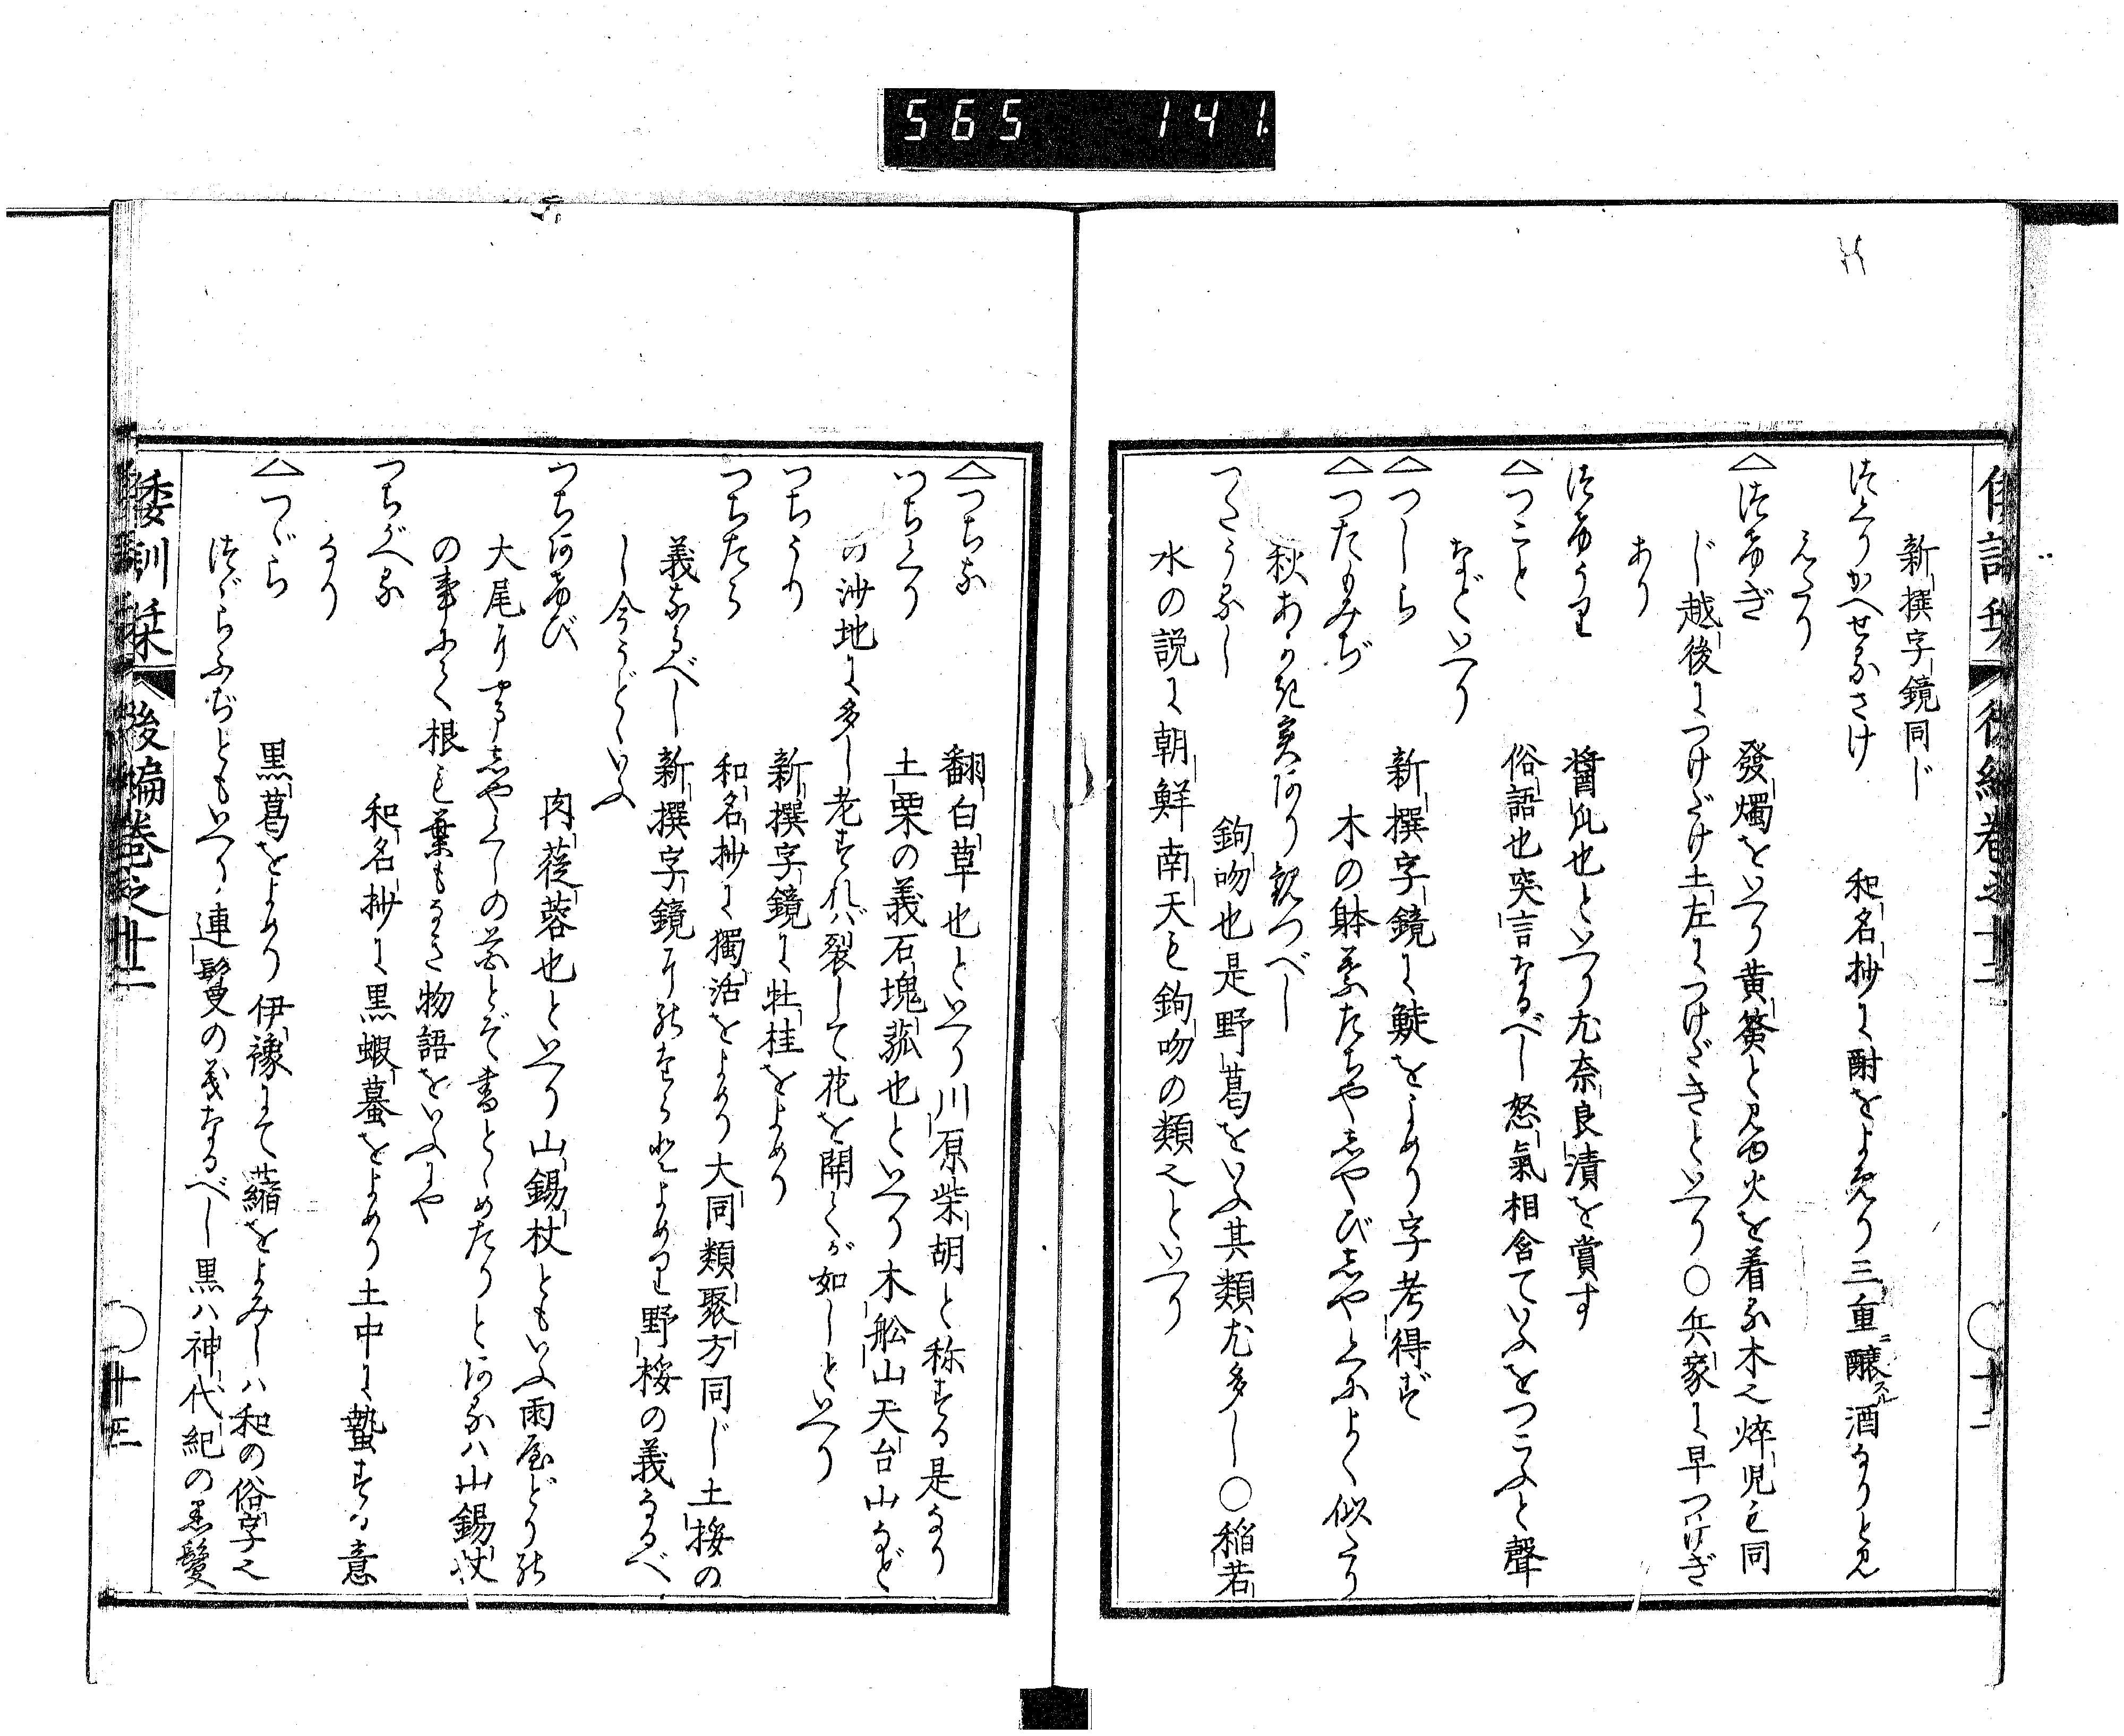 565 141
新撰字鏡同じ
つくりかへせるさけ 和名抄に酎をよめり三重ニ醸スル酒なりと見
えたり
△つけぎ 發燭をいへり黄簽と見ゆ火を着る木也焠児も同
じ越後につけだけ土左につけだきといへり○兵家に早つけぎ
あり
つけうり 醬瓜也といへり尤奈良漬を賞す
△つこと 俗語也突言なるべし怒氣相含ていふをつこふと聲
などいへり
△つしら 新撰字鏡に鯐をよめり字考得ず
△つたもみぢ 木の躰葉たちやしやびしやくによく似たり
秋あかき実あり観つべし
つたうるし 鉤吻也是野葛をいふ其類尤多し○稲若
水の説に朝鮮南天も鉤吻の類也といへり
倭訓栞 後編巻之十二
△つちな 翻白草也といへり川原柴胡と称する是なり
つちくり 土栗の義石塊菰也といへり木舩山天台山など
の沙地に多し老すれば裂して花を開くが如しといへり
つちうり 新撰字鏡に牡桂をよめり
つちたら 和名抄に獨活をよめり大同類聚方同じ土桵の
義なるべし新撰字鏡にのたらとよめるも野桵の義なるべ
し今うどといふ
つちあけび 肉蓯蓉也といへり山錫杖ともいふ雨屋どりの
大尾にやましやくしの花とぞ書とゞめたりとあるハ山錫杖
の事にて根も葉もなき物語をいふにや
つちがへる 和名抄に黒蝦蟇をよめり土中に蟄する意
なり
△つゞら 黒葛をよめり伊豫にて䕌をよみしハ和の俗字也
つゞらふぢともいへり連鬘の義なるべし黒ハ神代紀の黒鬘
倭訓栞 後編巻之十二 ○十三